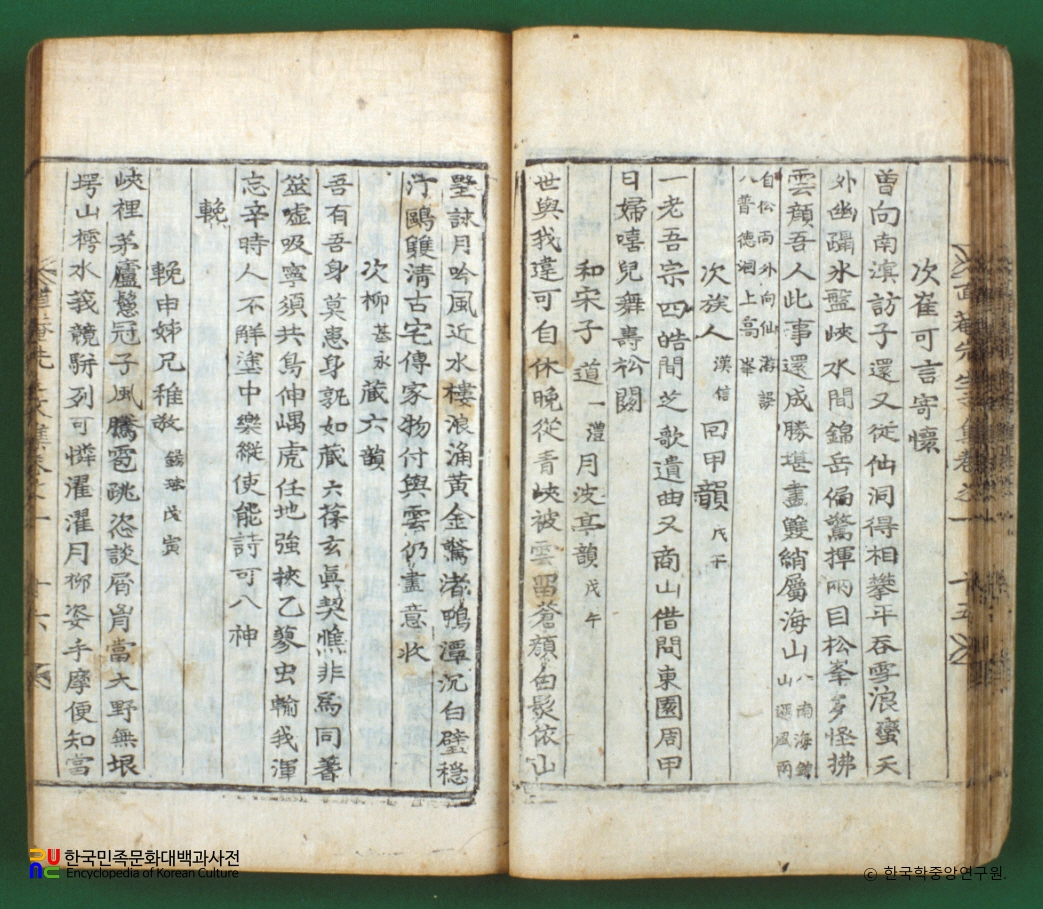 次崔可言寄懷
曾向南溟訪子還又從仙洞得相攀平呑雪浪蠻天
外幽躡氷盤峽水間錦岳偏驚揮兩目松峯多怪拂
雲顔吾人此事還成勝堪畵雙綃屬海山
自松雨外向仙游設
八普德洞上高峯
次族人漢信回甲韻戊午
一老吾宗四皓間芝歌遺曲又商山借問東園周甲
日婦嘻兒舞壽松關
和宋子道一澧月波亭韻戊午
世與我違可自休晩從青峽被雲留蒼顔白髮依山
墅詠月吟風近水樓浪涌黃金驚渚鴨潭沉白璧穩
汀鷗雖清古宅傳家物付與雲仍盡意收
次柳基永藏六韻
吾有吾身莫患身孰如藏六葆玄眞契憔非爲同蓍
筮噓吸寧須共鳥伸嵎虎任地強挾乙蓼虫輸我渾
忘辛時人不解塗中樂縱使能詩可八神
輓
輓申姊兄稚敎錫 戊寅
峽裡茅廬鬆冠子風騰雹跳恣談屑胷當大野無垠
堮山樗水莪競騈列可憐濯濯月柳姿手摩便知當
한국민족문화대백과사전
Encyclopedia of Korean Culture
© 한국학중앙연구원.